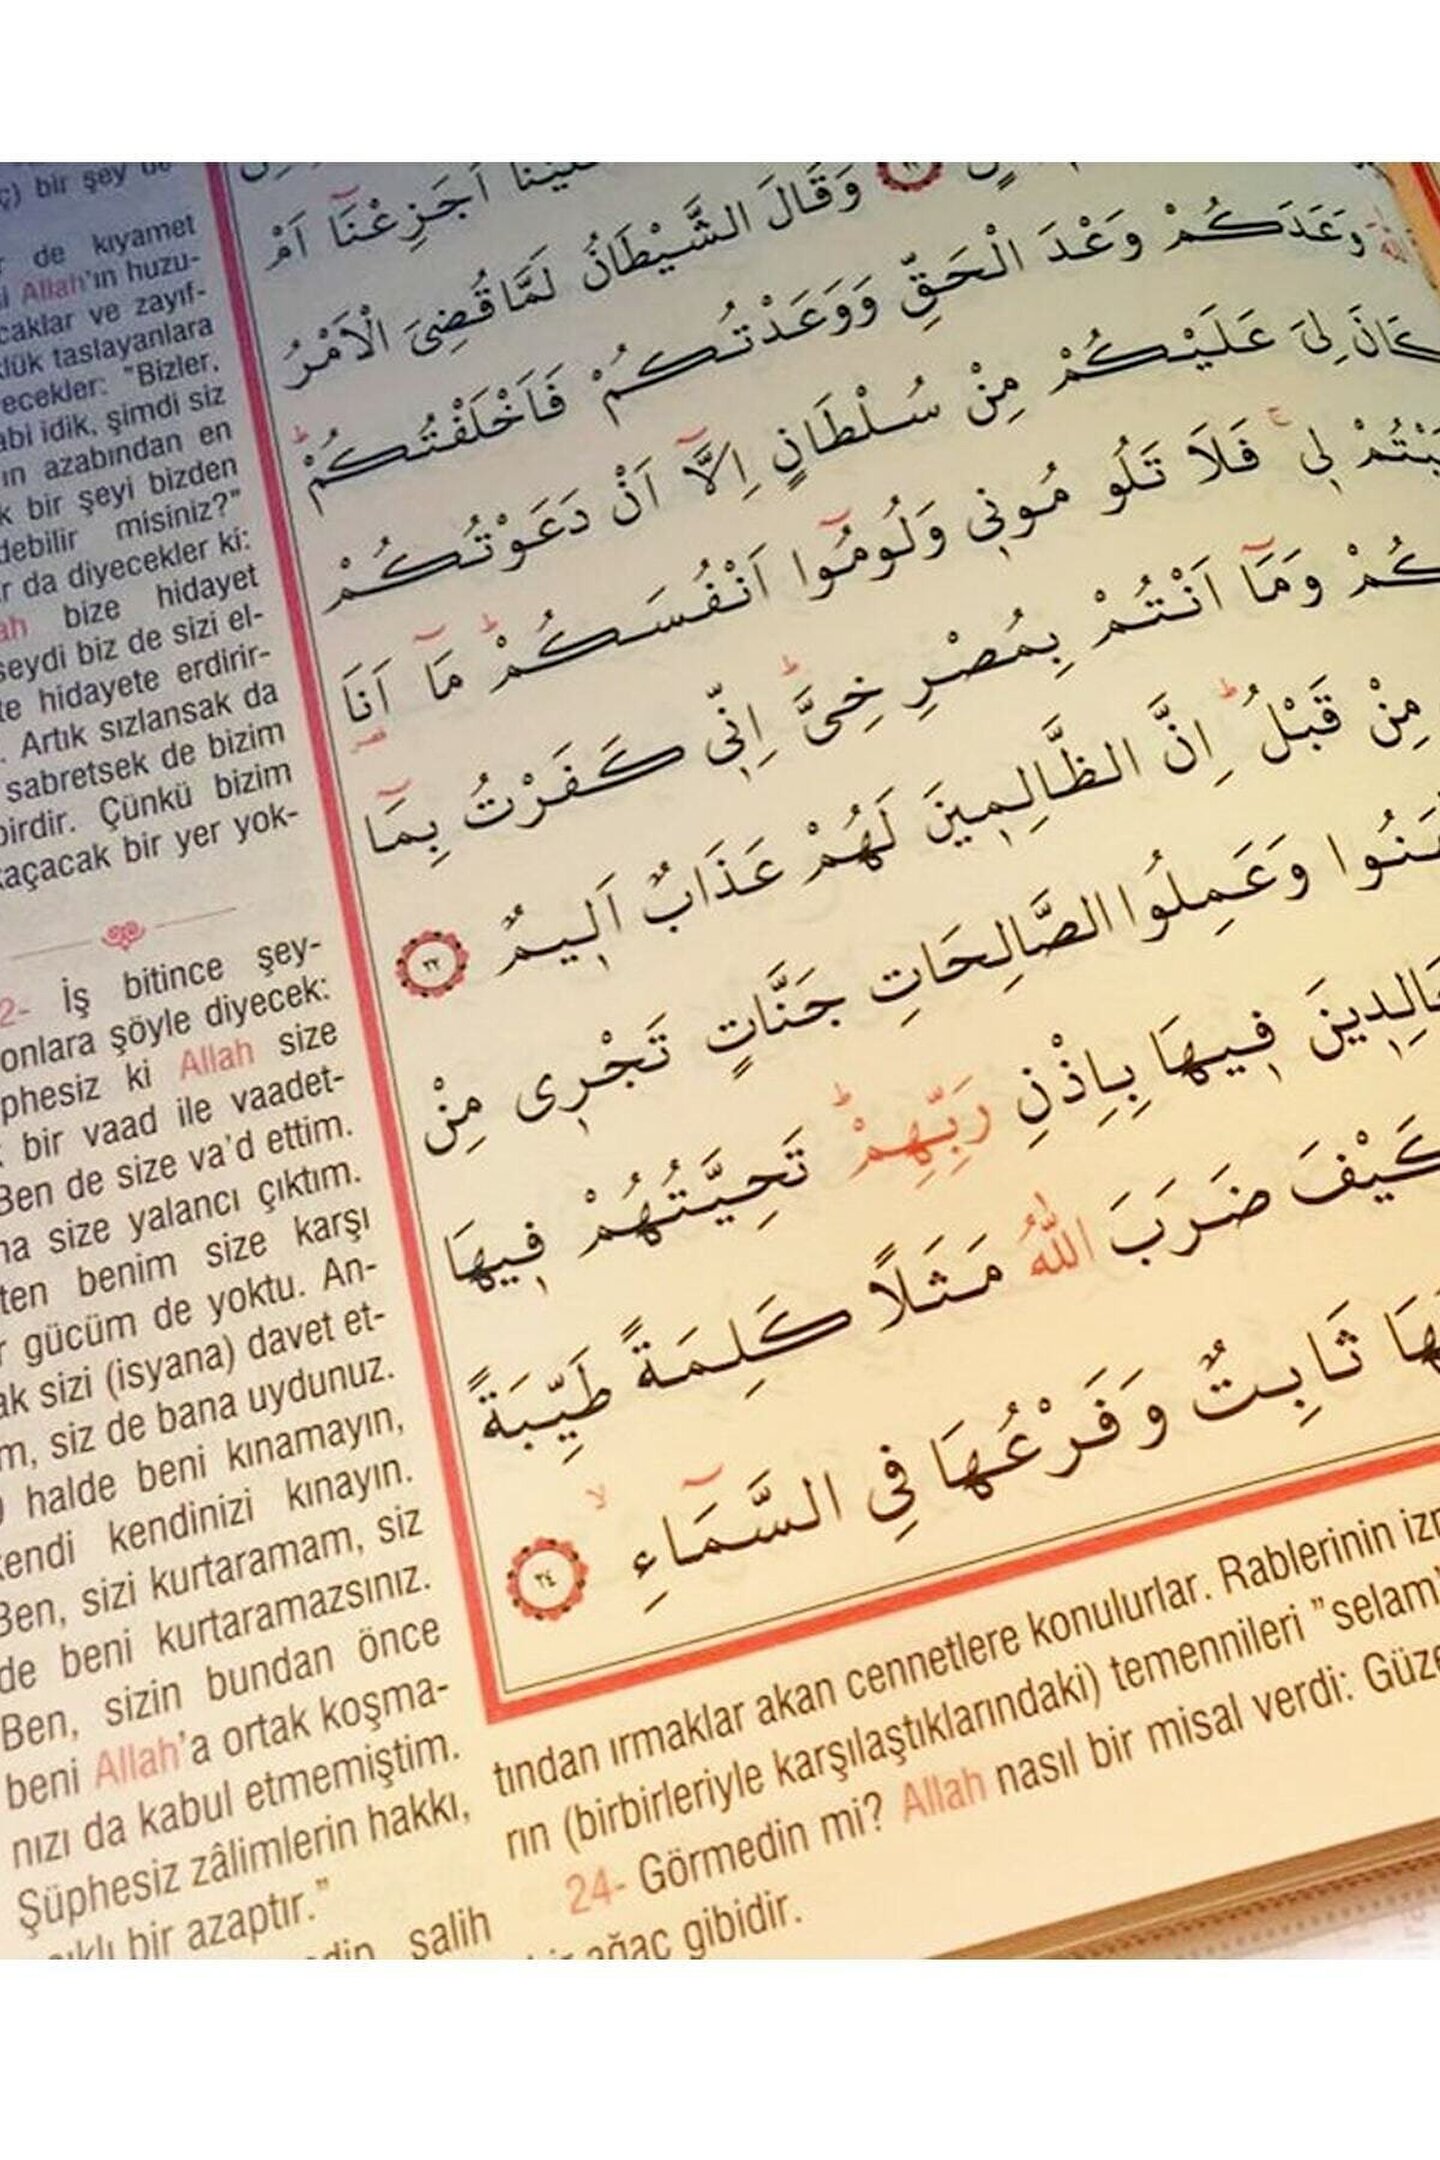 bir şey
de kıyamet
Allah'ın huzu-
caklar ve zayıf-
lük taslayanlara
ecekler: "Bizler,
abi idik, şimdi siz
ın azabından en
k bir şeyi bizden
debilir misiniz?"
r da diyecekler ki:
ah bize hidayet
seydi biz de sizi el-
te hidayete erdirir-
. Artık sızlansak da
sabretsek de bizim
birdir. Çünkü bizim
kaçacak bir yer yok-
2- İş bitince şey-
onlara şöyle diyecek:
phesiz ki Allah size
bir vaad ile vaadet-
Ben de size va'd ettim.
ma size yalancı çıktım.
ten benim size karşı
r gücüm de yoktu. An-
ak sizi (isyana) davet et-
m, siz de bana uydunuz.
halde beni kınamayın,
kendi kendinizi kınayın.
Ben, sizi kurtaramam, siz
de beni kurtaramazsınız.
Ben, sizin bundan önce
beni Allah'a ortak koşma-
nızı da kabul etmemiştim.
Şüphesiz zâlimlerin hakkı,
bir azaptır."
salih
اَجَزِعْنَٓا اَمْ
وَقَالَ الشَّيْطَانُ لَمَّا قُضِىَ الْاَمْرُ
وَعَدَكُمْ وَعْدَ الْحَقِّ وَوَعَدْتُكُمْ فَاَخْلَفْتُكُمْۜ
كَانَ لِىَ عَلَيْكُمْ مِنْ سُلْطَانٍ اِلَّٓا اَنْ دَعَوْتُكُمْ
لِىۚ فَلَا تَلُومُونِى وَلُومُٓوا اَنْفُسَكُمْۜ مَٓا اَنَا۬
وَمَٓا اَنْتُمْ بِمُصْرِخِىَّۜ اِنِّى كَفَرْتُ بِمَٓا
مِنْ قَبْلُۜ اِنَّ الظَّالِمِينَ لَهُمْ عَذَابٌ اَلِيمٌ ٢٢
وَعَمِلُوا الصَّالِحَاتِ جَنَّاتٍ تَجْرِى مِنْ
فِيهَا بِاِذْنِ رَبِّهِمْۜ تَحِيَّتُهُمْ فِيهَا
كَيْفَ ضَرَبَ اللّٰهُ مَثَلًا كَلِمَةً طَيِّبَةً
ثَابِتٌ وَفَرْعُهَا فِى السَّمَٓاءِۙ ٢٤
tından ırmaklar akan cennetlere konulurlar. Rablerinin
rın (birbirleriyle karşılaştıklarındaki) temennileri "selam"
24- Görmedin mi? Allah nasıl bir misal verdi:
ağaç gibidir.